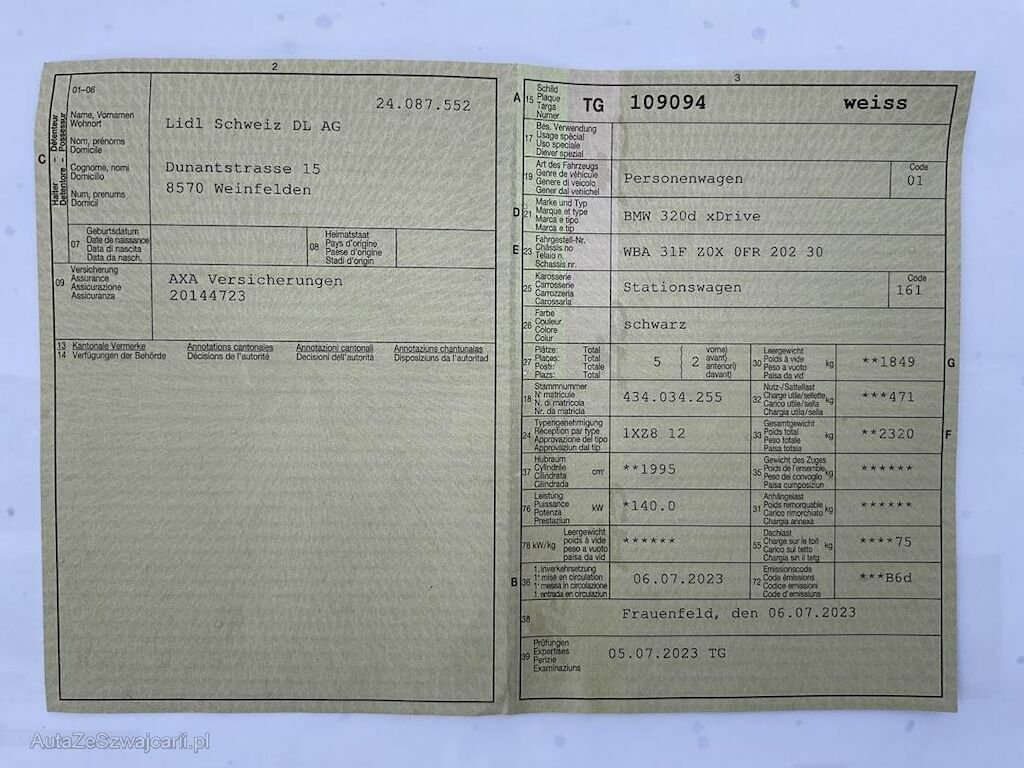 2
01–06
24.087.552
Name, Vornamen
Wohnort
Nom, prénoms
Domicile
Cognome, nomi
Domicilio
Num, prenums
Domicil
C
Halter – Détenteur
Detentore – Possessur
Lidl Schweiz DL AG
Dunantstrasse 15
8570 Weinfelden
07
Geburtsdatum
Date de naissance
Data di nascita
Data da nasch.
08
Heimatstaat
Pays d'origine
Paese d'origine
Stadi d'origin
09
Versicherung
Assurance
Assicurazione
Assicuranza
AXA Versicherungen
20144723
13 Kantonale Vermerke
14 Verfügungen der Behörde
Annotations cantonales
Décisions de l'autorité
Annotazioni cantonali
Decisioni dell'autorità
Annotaziuns chantunalas
Disposiziuns da l'autoritad
3
A 15
Schild
Plaque
Targa
Numer
TG 109094 weiss
17
Bes. Verwendung
Usage spécial
Uso speciale
Diever spezial
19
Art des Fahrzeugs
Genre de véhicule
Genere di veicolo
Gener dal vehichel
Personenwagen
Code
01
D 21
Marke und Typ
Marque et type
Marca e tipo
Marca e tip
BMW 320d xDrive
E 23
Fahrgestell-Nr.
Châssis no
Telaio n.
Schassis nr.
WBA 31F Z0X 0FR 202 30
25
Karosserie
Carrosserie
Carrozzeria
Carossaria
Stationswagen
Code
161
26
Farbe
Couleur
Colore
Colur
schwarz
27
Plätze: Total
Places: Total
Posti: Totale
Plazs: Total
5 ( 2
vorne)
avant)
anteriori)
davant)
30
Leergewicht
Poids à vide
Peso a vuoto
Paisa da vid
kg
**1849
G
18
Stammnummer
N° matricule
N. di matricola
Nr. da matricla
434.034.255
32
Nutz-/Sattellast
Charge utile/sellette
Carico utile/sella
Chargia utila/sella
kg
***471
24
Typengenehmigung
Réception par type
Approvazione del tipo
Approvaziun dal tip
1XZ8 12
33
Gesamtgewicht
Poids total
Peso totale
Paisa totala
kg
**2320
F
37
Hubraum
Cylindrée
Cilindrata
Cilindrada
cm³
**1995
35
Gewicht des Zuges
Poids de l'ensemble
Peso del convoglio
Paisa cumposiziun
kg
******
76
Leistung
Puissance
Potenza
Prestaziun
kW
*140.0
31
Anhängelast
Poids remorquable
Carico rimorchiato
Chargia annexa
kg
******
78 kW/kg
Leergewicht
poids à vide
peso a vuoto
paisa da vid
******
55
Dachlast
Charge sur le toit
Carico sul tetto
Chargia sin il tetg
kg
****75
B 36
1. Inverkehrsetzung
1re mise en circulation
1a messa in circolazione
1. entrada en circulaziun
06.07.2023
72
Emissionscode
Code émissions
Codice emissioni
Code d'emissiuns
***B6d
38
Frauenfeld, den 06.07.2023
39
Prüfungen
Expertises
Perizie
Examinaziuns
05.07.2023 TG
AutaZeSzwajcarii.pl